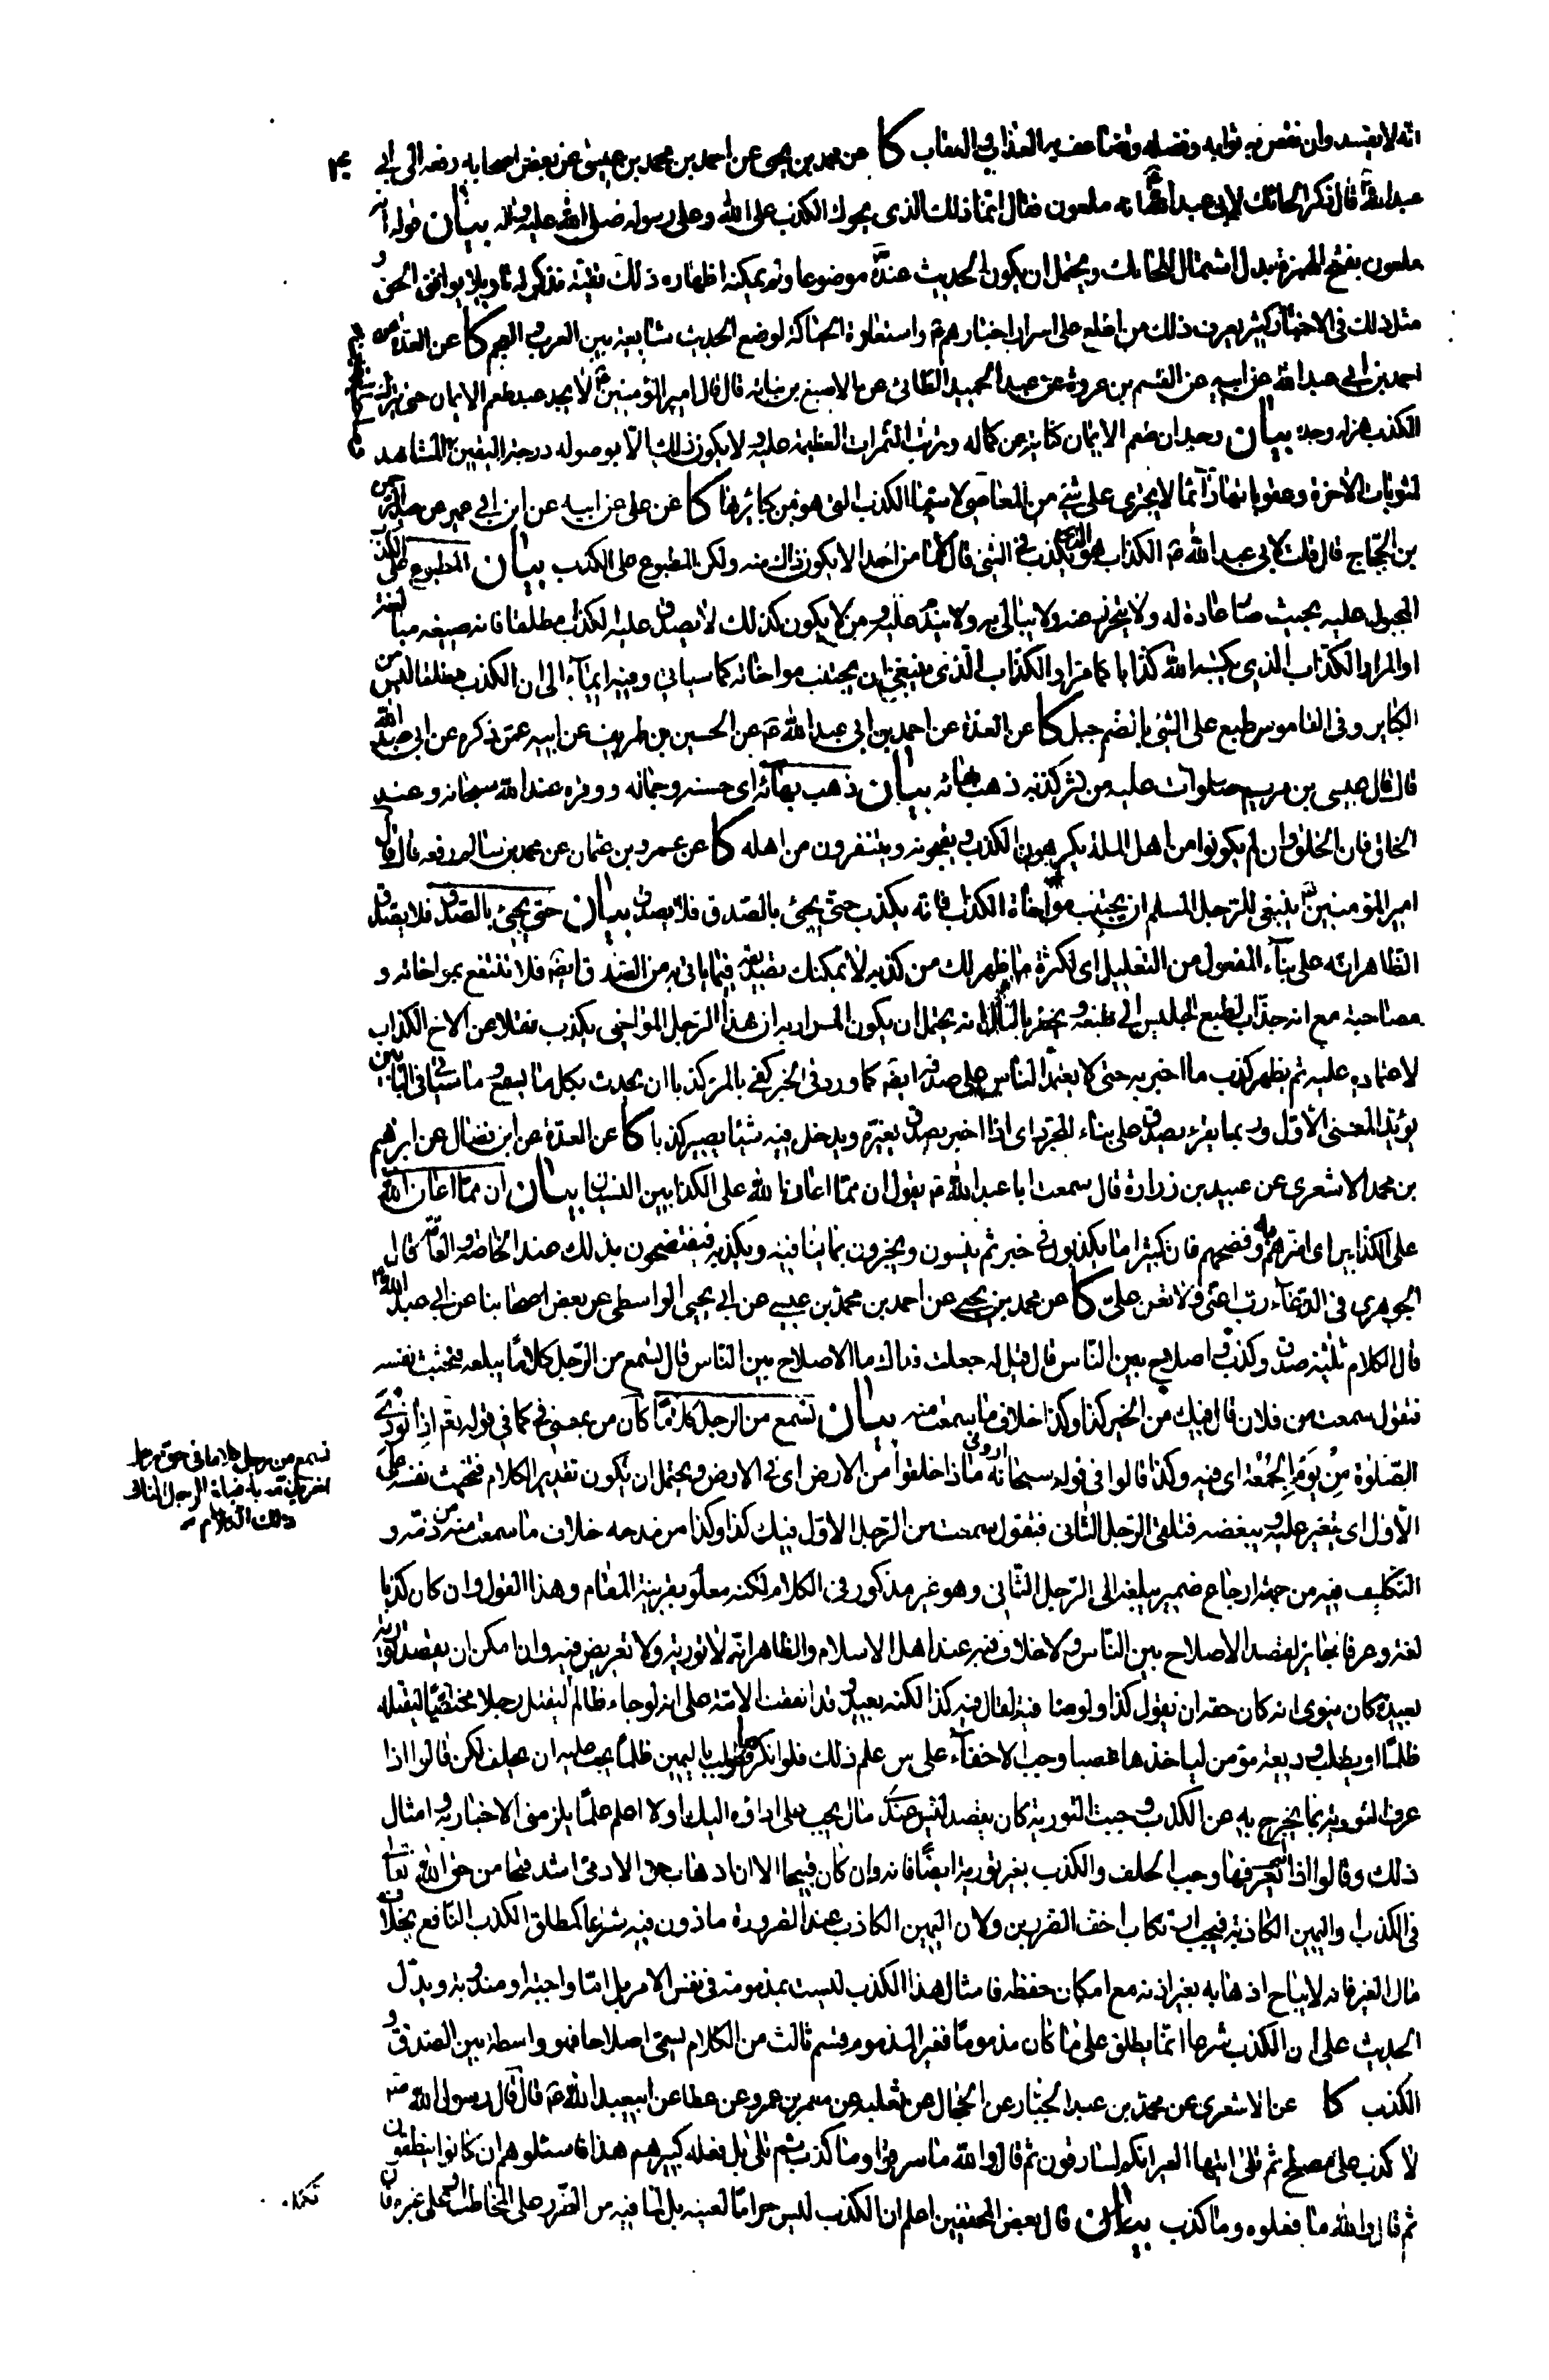 انه لا يفسد وان نقص به ثوابه وفضله وتضاعف به العذاب والعقاب كا عن محمد بن يحيى عن احمد بن محمد بن عيسى عن بعض اصحابه رفعه الى ابي
عبد الله ع قال ذكر الحائك لابي عبد الله ع انه ملعون فقال انما ذلك الذي يحوك الكذب على الله وعلى رسوله صلى الله عليه واله بيان قوله انه
ملعون بفتح الهمزة بدل اشتمال للحائك ويحتمل ان يكون الحديث عنده ع موضوعا ولم يمكنه اظهاره ذلك تقية فذكر له تاويلا يوافق الحق و
مثل ذلك في الاخبار كثير يعرف ذلك من اطلع على اسرار اخبارهم ع واستعارة الحياكة لوضع الحديث شايعة بين العرب والعجم كا عن العدة عن
احمد بن ابي عبد الله عن ابيه عن القسم بن عروة عن عبد الحميد الطائي عن الاصبغ بن نباتة قال قال امير المؤمنين ع لا يجد عبد طعم الايمان حتى يترك
الكذب هزله وجده بيان وجدان طعم الايمان كناية عن كماله وترتب الثمرات العظيمة عليه ولا يكون ذلك الا بوصوله درجة اليقين المشاهد
لمثوبات الاخرة وعقوباتها دائما لا يجتري على شيء من المعاصي لا سيما الكذب التي هو من كبائرها كا عن علي عن ابيه عن ابن ابي عمير عن عبد الرحمن
بن الحجاج قال قلت لابي عبد الله ع الكذاب هو الذي يكذب في الشيء قال لا ما من احد الا يكون ذاك منه ولكن المطبوع على الكذب بيان المطبوع على الكذب
المجبول عليه بحيث صار عادة له ولا يتحرز عنه ولا يبالي به ولا يندم عليه ومن لا يكون كذلك لا يصدق عليه الكذاب مطلقا فانه صيغة مبالغة
او المراد الكذاب الذي يكتبه الله كذابا كما مر او الكذاب الذي ينبغي ان يجتنب مواخاته كما سياتي وفيه ايماء الى ان الكذب مطلقا ليس من
الكبائر وفي القاموس طبع على الشيء بالضم جبل كا عن العدة عن احمد بن ابي عبد الله ع عن الحسين بن طريف عن ابيه عمن ذكره عن ابي عبد الله
قال قال عيسى بن مريم صلوات عليه من كثر كذبه ذهب بهائه بيان ذهب بهائه اي حسنه وجماله ووقره عند الله سبحانه وعند
الخلق فان الخلق وان لم يكونوا من اهل الملة يكرهون الكذب ويقبحونه ويتنفرون من اهله كا عن عمرو بن عثمان عن محمد بن سالم رفعه قال قال
امير المؤمنين ع ينبغي للرجل المسلم ان يجتنب مواخاة الكذاب فانه يكذب حتى يجئ بالصدق فلا يصدق بيان حتى يجئ بالصدق فلا يصدق
الظاهر انه على بناء المفعول من التفعيل اي لكثرة ما ظهر لك من كذبه لا يمكنك تصديقه فيما ياتي به من الصدق ايضا فلا تنتفع بمواخاته و
مصاحبته مع انه جذاب لطبع الجليس الى طبعه انه يحتمل ان يكون المراد به ان هذا الرجل المواخي يكذب نقلا عن الاخ الكذاب
لاعتماده عليه ثم يظهر كذب ما اخبر به حتى لا يعتمد الناس على صدقه ايضا كما ورد في الخبر كفى بالمرء كذبا ان يحدث بكل ما يسمع وما سياتي في البابين
يؤيد المعنى الاول وربما يقرء يصدق على بناء المجرد اي اذا اخبر بصدق يغيره ويدخل فيه شيئا يصير كذبا كا عن العدة عن ابن فضال عن ابرهيم
بن محمد الاشعري عن عبيد بن زرارة قال سمعت ابا عبد الله ع يقول ان مما اعان الله على الكذابين النسيان بيان ان مما اعان الله
على الكذابين اي اضرهم به وفضحهم فان كثيرا ما يكذبون في خبر ثم ينسون ويخبرون بما ينافيه ويكذبه فيفتضحون بذلك عند الخاصة والعامة قال
الجوهري في الدعاء رب اعني ولا تعن علي كا عن محمد بن يحيى عن احمد بن محمد بن عيسى عن ابي يحيى الواسطي عن بعض اصحابنا عن ابي عبد الله ع
قال الكلام ثلثة صدق وكذب واصلاح بين الناس قال قيل له جعلت فداك ما الاصلاح بين الناس قال تسمع من الرجل كلاما يبلغه فتخبث نفسه
فتقول سمعت من فلان قال فيك من الخير كذا وكذا خلاف ما سمعت منه بيان تسمع من الرجل كلاما كان من بمعنى في كما في قوله تعم اذا نودي
الصلوة من يوم الجمعة اي فيه وكذا قالوا في قوله سبحانه اروني ماذا خلقوا من الارض اي في الارض ويحتمل ان يكون تقدير الكلام فتخبث نفسه على
الاول اي يتغير عليه ويبغضه فتلقى الرجل الثاني فتقول سمعت من الرجل الاول فيك كذا وكذا من مدحه خلاف ما سمعت منه من ذمه و
التكليف فيه من جهة ارجاع ضمير يبلغه الى الرجل الثاني وهو غير مذكور في الكلام لكنه معلوم بقرينة المقام وهذا القول وان كان كذبا
لغة وعرفا جائز لقصد الاصلاح بين الناس ولا خلاف فيه عند اهل الاسلام والظاهر انه لا تورية ولا تعريض فيه وان امكن ان يقصد تورية
بعيدة كان ينوي انه كان حقه ان يقول كذا ولو صافيته لقال فيه كذا لكنه بعيد وقد اتفقت الامة على انه لو جاء ظالم ليقتل رجلا مختفيا ليقتله
ظلما او يطلب وديعة مؤمن لياخذها غصبا وجب الاخفاء على من علم ذلك فلو انكر فطولب باليمين ظلما يجب عليه ان يحلف لكن قالوا اذا
عرف التورية بما يخرج به عن الكذب وجبت التورية كان يقصد ليس عندي مال يجب علي اداؤه اليك او لا اعلم علما يلزمني الاخبار به وامثال
ذلك وقالوا اذا لم يعرفها وجب الحلف والكذب بغير تورية ايضا فانه وان كان قبيحا الا ان اذهاب حق الادمي اشد قبحا من حق الله تعالى
في الكذب او اليمين الكاذبة فيجب ارتكاب اخف الضررين ولان اليمين الكاذب عند الضرورة ماذون فيه شرعا كمطلق الكذب النافع بخلاف
مال الغير فانه لا يباح اذهابه بغير اذنه مع امكان حفظه فامثال هذا الكذب ليست بمذمومة في نفس الامر بل اما واجبة او مندوبة ويدل
الحديث على ان الكذب شرعا انما يطلق على ما كان مذموما فغير المذموم قسم ثالث من الكلام يسمى اصلاحا فهو واسطة بين الصدق و
الكذب كا عن الاشعري عن محمد بن عبد الجبار عن الحجال عن ثعلبة عن معمر بن عمرو عن عطا عن ابيعبد الله ع قال قال رسول الله ص
لا كذب على مصلح ثم تلى ايتها العير انكم لسارقون ثم قال والله ما سرقوا وما كذب ثم تلى بل فعله كبيرهم هذا فاسئلوهم ان كانوا ينطقون
ثم قال والله ما فعلوه وما كذب بيان قال بعض المحققين اعلم ان الكذب ليس حراما لعينه بل لما فيه من الضرر على المخاطب او على غيره فان
تسمع من رجل كلاما في حق رجل
ذلك الكلام